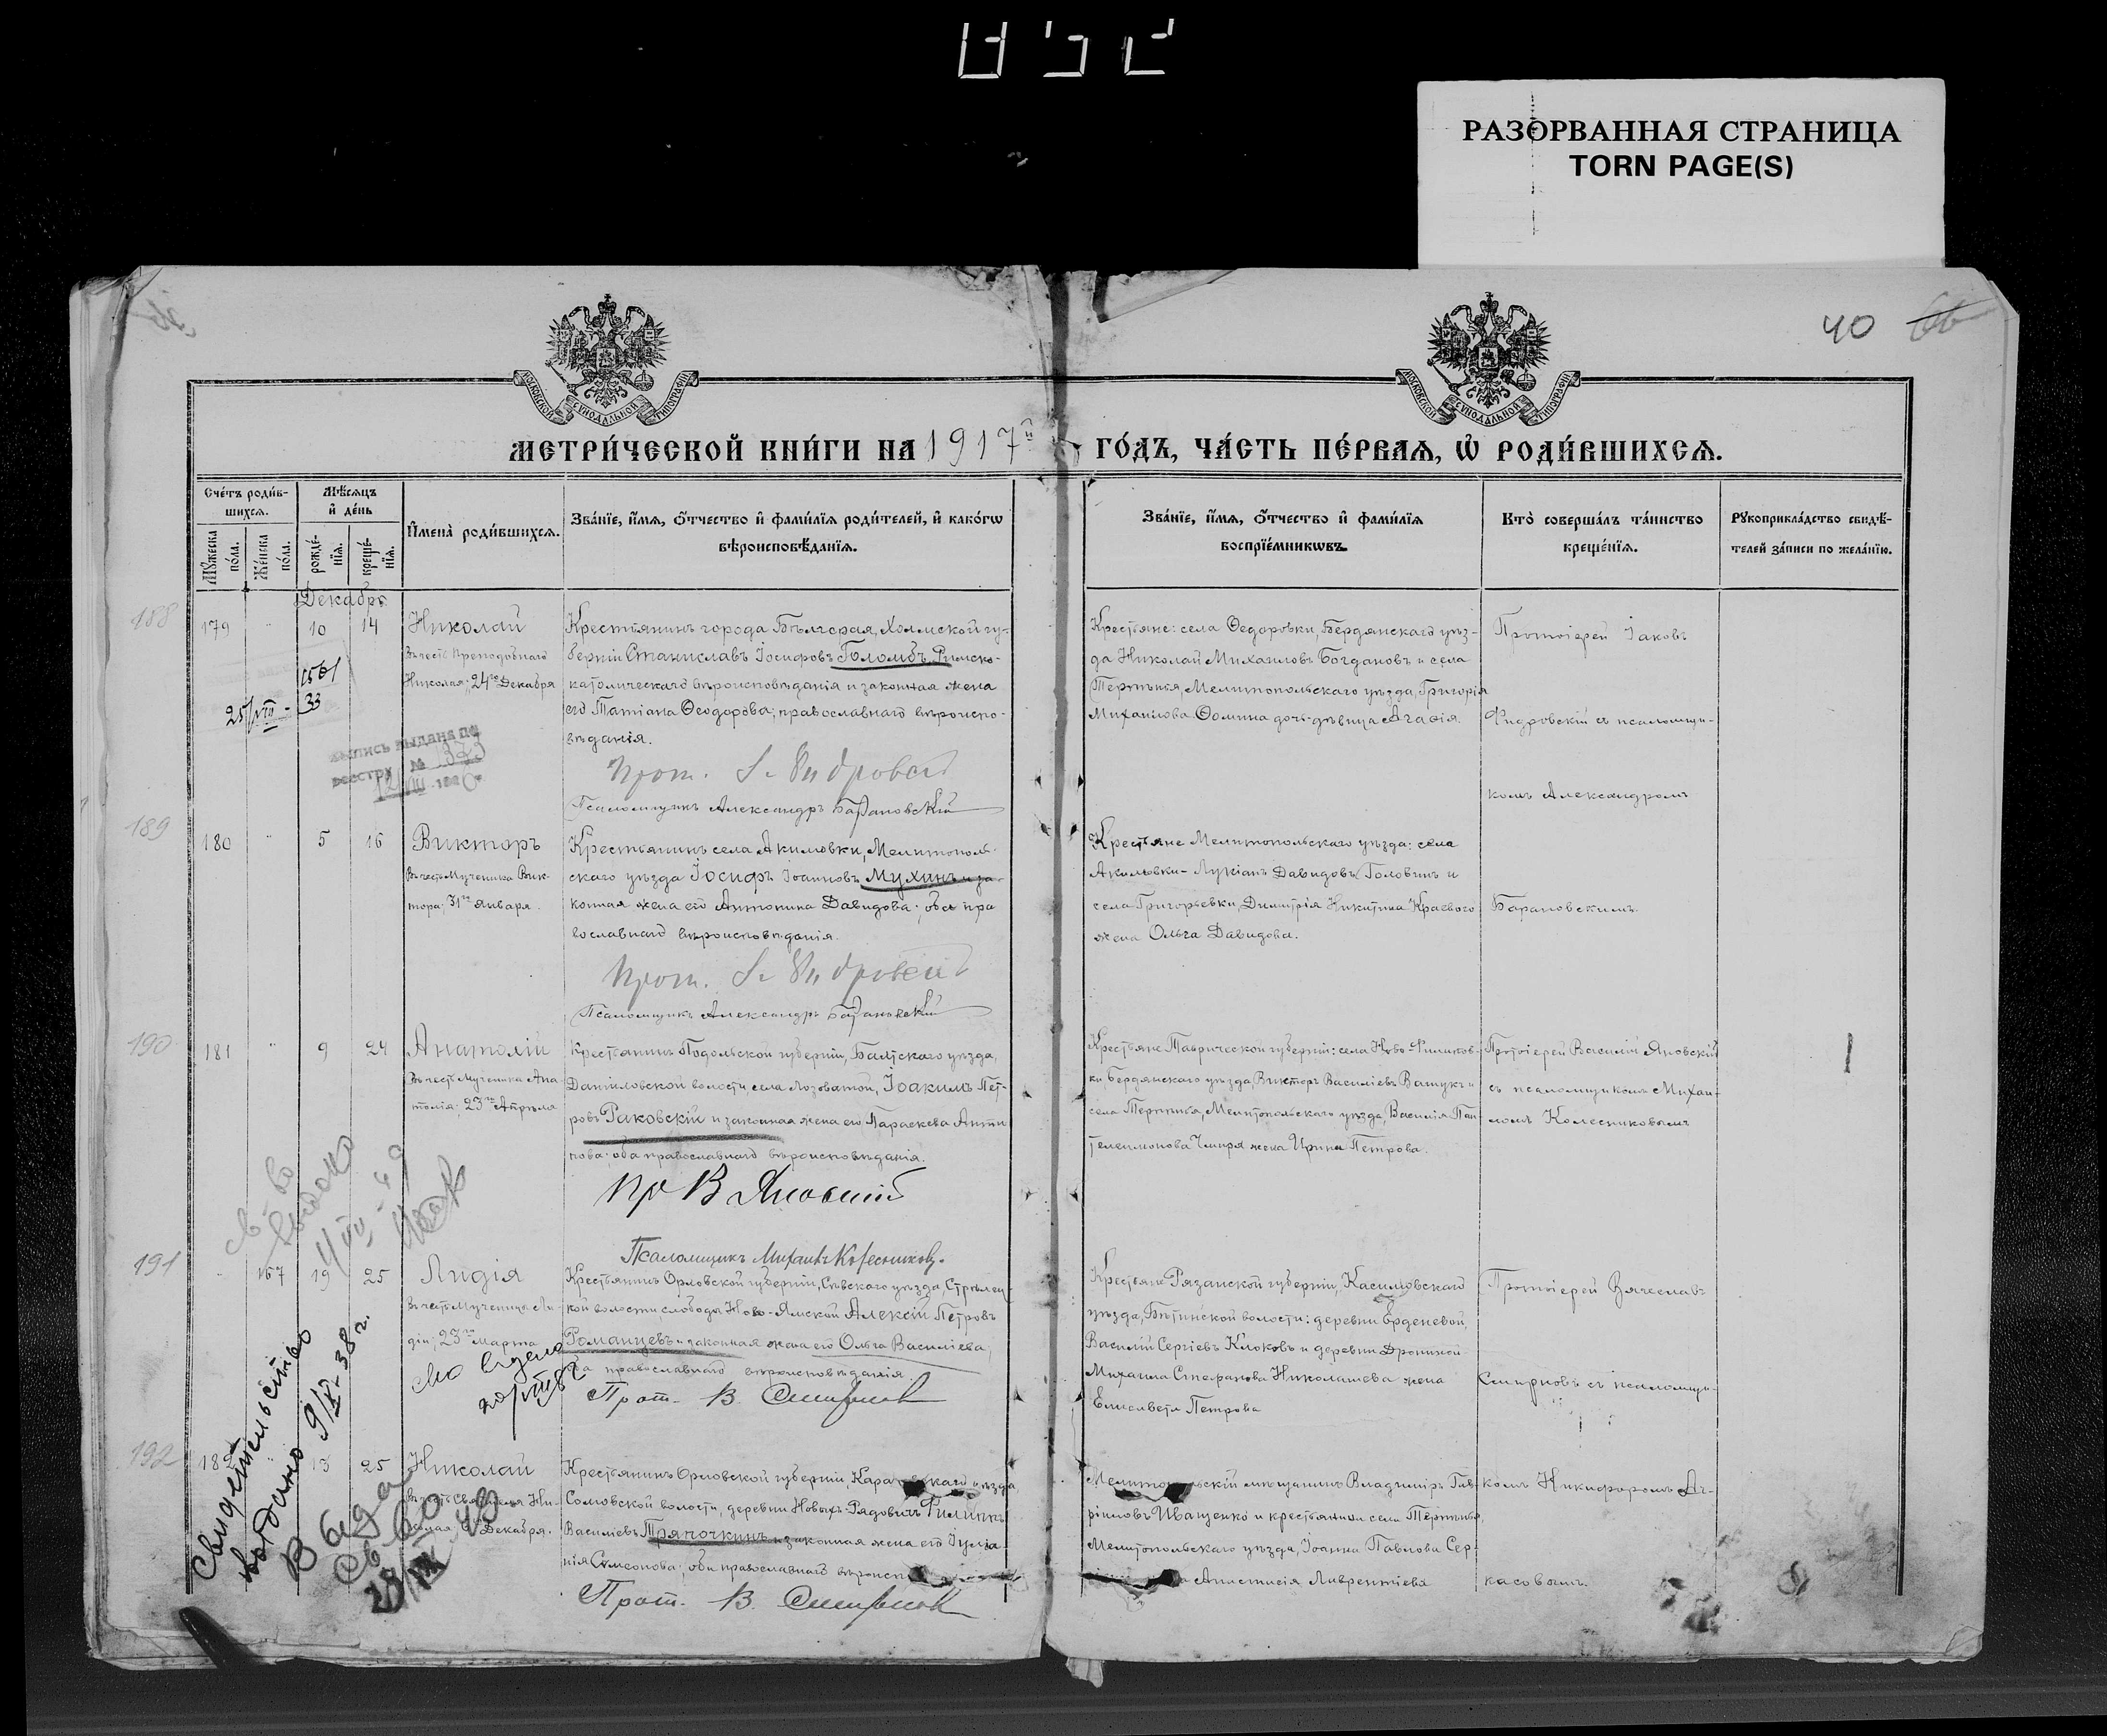 РАЗОРВАННАЯ СТРАНИЦА
TORN PAGE(S)
40
66
МОСКОВСКОЙ СѴНОДАЛЬНОЙ ТИПОГРАФІИ
МОСКОВСКОЙ СѴНОДАЛЬНОЙ ТИПОГРАФІИ
МЕТРИ́ЧЕСКОЙ КНИ́ГИ НА 1917й ГО́ДЪ, ЧА́СТЬ ПЕ́РВАѦ, Ѡ҆ РОДИ́ВШИХСѦ.
Сче́тъ роди́в-
шихсѧ.
Мꙋ́жеска по́ла.
Же́нска по́ла.
Мѣ́сѧцъ и҆ де́нь
рожде́-
нїѧ.
креще́-
нїѧ.
И҆мена̀ роди́вшихсѧ.
Зва́нїе, и҆́мѧ, ѻ҆́тчество и҆ фами́лїѧ роди́телей, и҆ како́гѡ
вѣроисповѣ́данїѧ.
Зва́нїе, и҆́мѧ, ѻ҆́тчество и҆ фами́лїѧ
воспрїе́мникѡвъ.
Кто̀ соверша́лъ та́инство
креще́нїѧ.
Рꙋкоприкла́дство свидѣ́-
телей за́писи по жела́нїю.
Декабрь
188
179 " 10 14
Николай
Въ честь Преподобнаго
Николая; 24го Декабря
Крестьянинъ города Бѣлгорая, Холмской гу-
берніи Станиславъ Іосифовъ Голомбъ, Римско-
католическаго вѣроисповѣданія и законная жена
его Татіана Ѳеодорова; православнаго вѣроиспо-
вѣданія.
Псаломщикъ Александръ Барановскій
Крестьяне: села Ѳедоровки, Бердянскаго уѣз-
да Николай Михаиловъ Богдановъ и села
Терпѣнія, Мелитопольскаго уѣзда, Григорія
Михаилова Ѳомина дочь-дѣвица Агаѳія.
Протоіерей Іаковъ
Фидровскій съ псаломщи-
комъ Александромъ
Барановскимъ.
25/VIII - 33
выпись выдана по
реестру № 1373
189
180 " 5 16
Викторъ
Въ честь Мученика Вик-
тора; 31го Января.
Крестьянинъ села Акимовки, Мелитополь-
скаго уѣзда Іосифъ Іоанновъ Мухинъ и за-
конная жена его Антонина Давидова; оба пра
вославнаго вѣроисповѣданія.
Псаломщикъ Александръ Барановскій
Крестьяне Мелитопольскаго уѣзда: села
Акимовки - Лукіанъ Давидовъ Головинъ и
села Григорьевки, Димитрія Никитина Краевого
жена Ольга Давидова.
190
181 " 9 24
Анатолій
Въ честь Мученика Ана-
толія; 23го Апрѣля
Крестьянинъ Подольской губерніи, Балтскаго уѣзда,
Даниловской волости, села Лозоватой, Іоакимъ Пет-
ровъ Раковскій и законная жена его Параскева Анти
пова; оба православнаго вѣроисповѣданія.
Пр В Яновскій
Псаломщикъ Михаилъ Колесниковъ.
Крестьяне Таврической губерніи: села Ново-Филипов-
ки Бердянскаго уѣзда, Викторъ Василіевъ Ващукъ и
села Терпѣнія, Мелитопольскаго уѣзда, Василія Пан
телеимонова Чмиря жена Ирина Петрова.
Протоіерей Василій Яновскій
съ псаломщикомъ Михаи-
ломъ Колесниковымъ
191
" 167 19 25
Лидія
Въ честь Мученицы Ли-
діи; 23го Марта
Крестьянинъ Орловской губерніи, Сѣвскаго уѣзда, Стрѣлец-
кой волости, слободы Ново-Ямской Алексій Петровъ
Романцевъ и законная жена его Ольга Василіева,
оба православнаго вѣроисповѣданія.
Прот. В. Смирнов
Крестьяне Рязанской губерніи, Касимовскаго
уѣзда, Бѣтинской волости: деревни Ерденевой,
Василій Сергіевъ Клоковъ и деревни Дрониной
Михаила Стефанова Николашева жена
Елисавета Петрова
Протоіерей Вячеславъ
Смирновъ съ псаломщи-
192
182 " 13 25
Николай
Крестьянинъ Орловской губерніи, уѣзда,
Сомовской волости, деревни Новыхъ-Рядовичъ Филиппъ
Василіевъ Тряпочкинъ и законная жена его Іулiа
нія Симеонова; оба православнаго вѣроисп
Прот. В. Смирнов
мѣщанинъ Владиміръ Гав-
ріиловъ Иващенко и крестьянина села Терпѣнія,
Мелитопольскаго уѣзда, Іоанна Павлова Сер
Анастасія Лаврентіева
комъ Никифоромъ Ар-
касовымъ.
Св-во
выдано
Свидетельство
выдано 9/IX-38 г.
Выда
Св-во